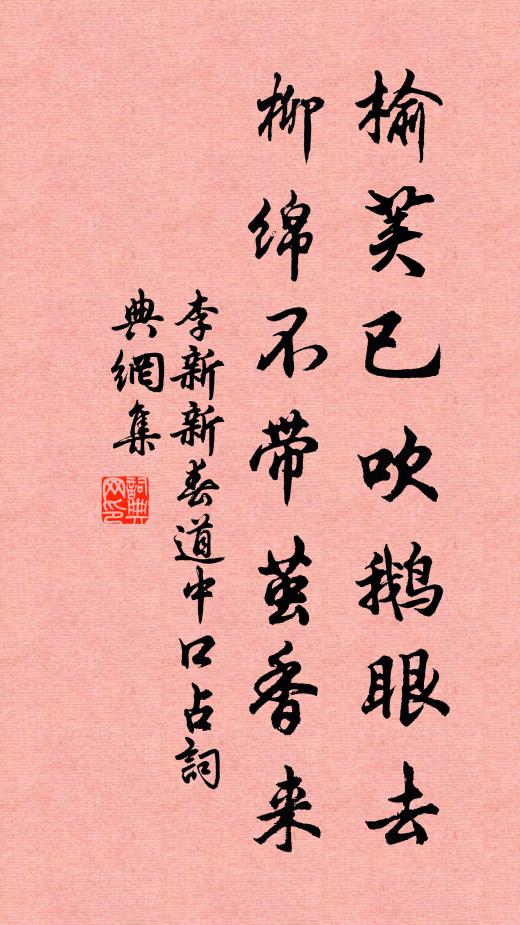 榆荚已吹鹅眼去
柳绵不带茧香来
李新新春道中口占詞
典網集
詞典
网印